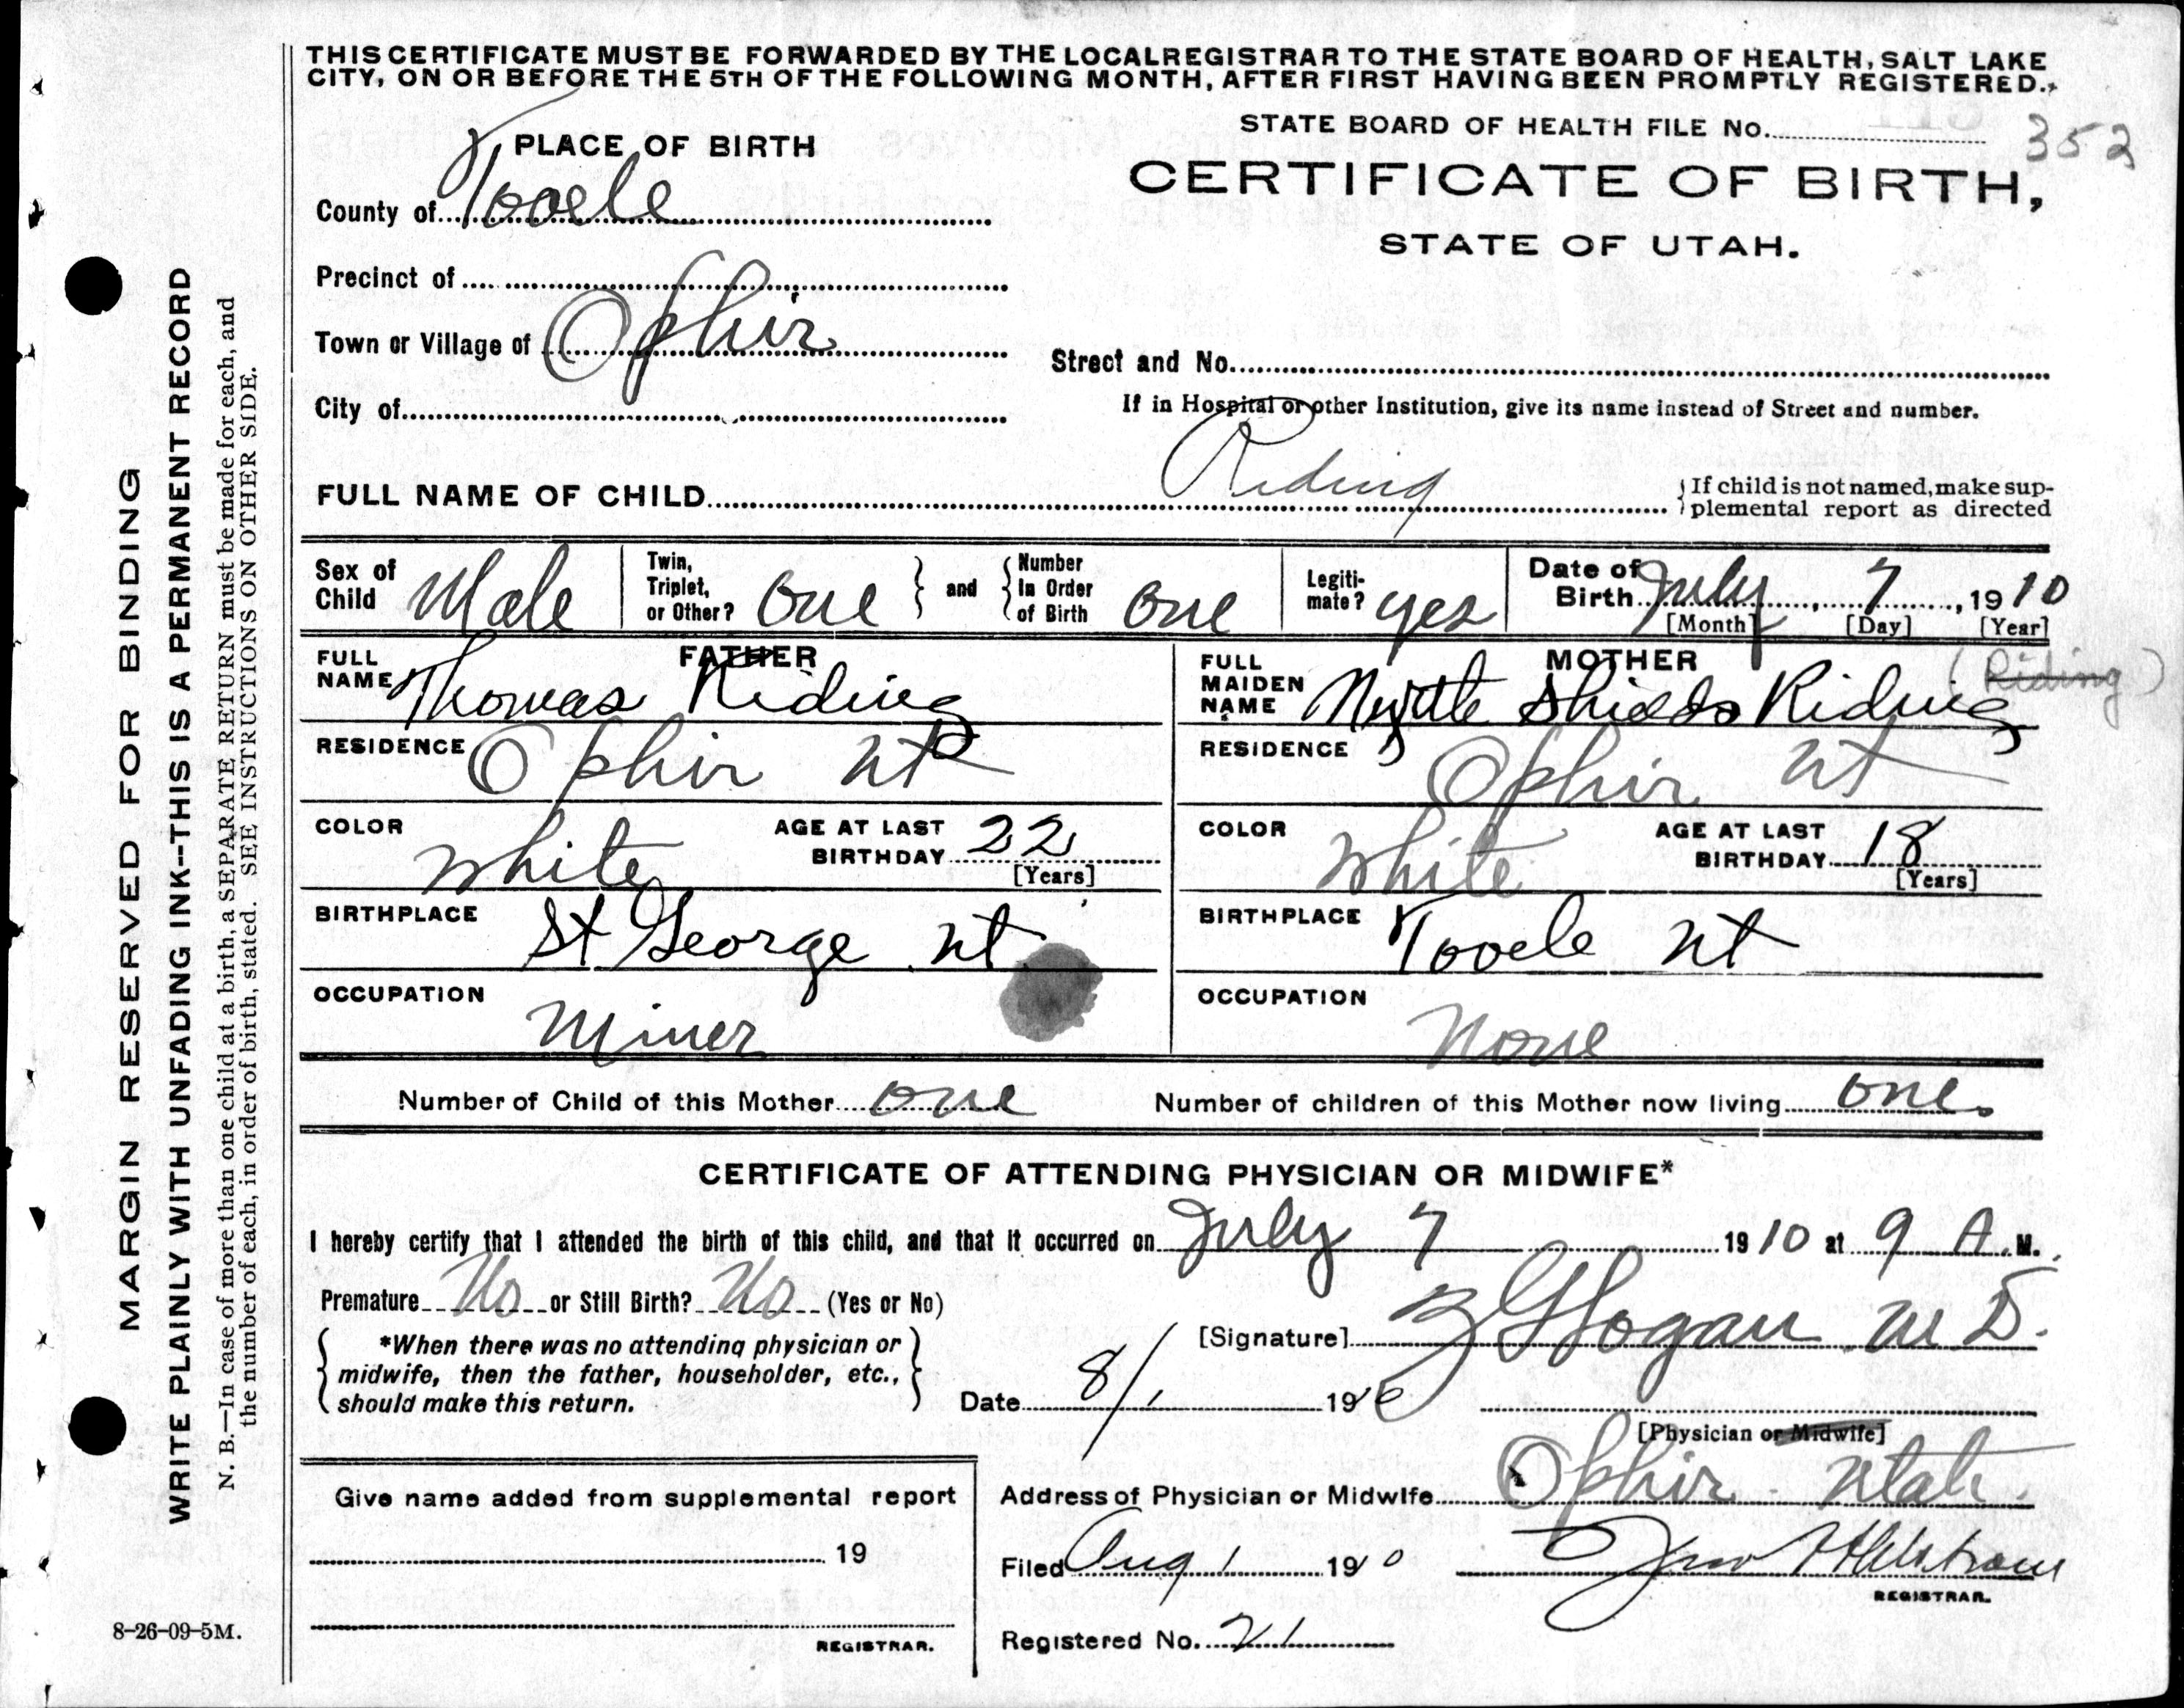 THIS CERTIFICATE MUST BE FORWARDED BY THE LOCAL REGISTRAR TO THE STATE BOARD OF HEALTH, SALT LAKE
CITY, ON OR BEFORE THE 5TH OF THE FOLLOWING MONTH, AFTER FIRST HAVING BEEN PROMPTLY REGISTERED.
STATE BOARD OF HEALTH FILE No. 352
PLACE OF BIRTH
CERTIFICATE OF BIRTH,
STATE OF UTAH.
County of Tooele
Precinct of
Town or Village of Ophir
Street and No.
City of
If in Hospital or other Institution, give its name instead of Street and number.
FULL NAME OF CHILD Riding
If child is not named, make sup-
plemental report as directed
Sex of Child Male
Twin, Triplet, or Other? One and Number In Order of Birth One
Legiti-mate? yes
Date of Birth July 7, 1910
[Month] [Day] [Year]
FATHER
FULL NAME Thomas Riding
RESIDENCE Ophir Ut
COLOR White AGE AT LAST BIRTHDAY 22
[Years]
BIRTHPLACE St George Ut
OCCUPATION Miner
MOTHER
(Riding)
FULL MAIDEN NAME Myrtle Shields Riding
RESIDENCE Ophir Ut
COLOR White AGE AT LAST BIRTHDAY 18
[Years]
BIRTHPLACE Tooele Ut
OCCUPATION None
Number of Child of this Mother one Number of children of this Mother now living one.
CERTIFICATE OF ATTENDING PHYSICIAN OR MIDWIFE*
I hereby certify that I attended the birth of this child, and that it occurred on July 7 1910 at 9 A. M.
Premature No or Still Birth? No (Yes or No)
*When there was no attending physician or
midwife, then the father, householder, etc.,
should make this return.
[Signature] Hogan M D.
Date 8/1 1910
[Physician or Midwife]
Address of Physician or Midwife Ophir Utah.
Give name added from supplemental report
19
REGISTRAR.
Filed Aug 1 1910
REGISTRAR.
Registered No. 21
8-26-09-5M.
MARGIN RESERVED FOR BINDING
WRITE PLAINLY WITH UNFADING INK--THIS IS A PERMANENT RECORD
N. B.—In case of more than one child at a birth, a SEPARATE RETURN must be made for each, and
the number of each, in order of birth, stated. SEE INSTRUCTIONS ON OTHER SIDE.